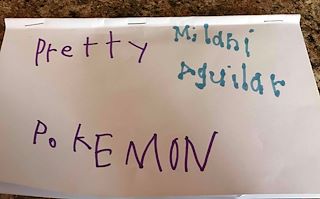 Pretty
Milani
Aguilar
PokEMON